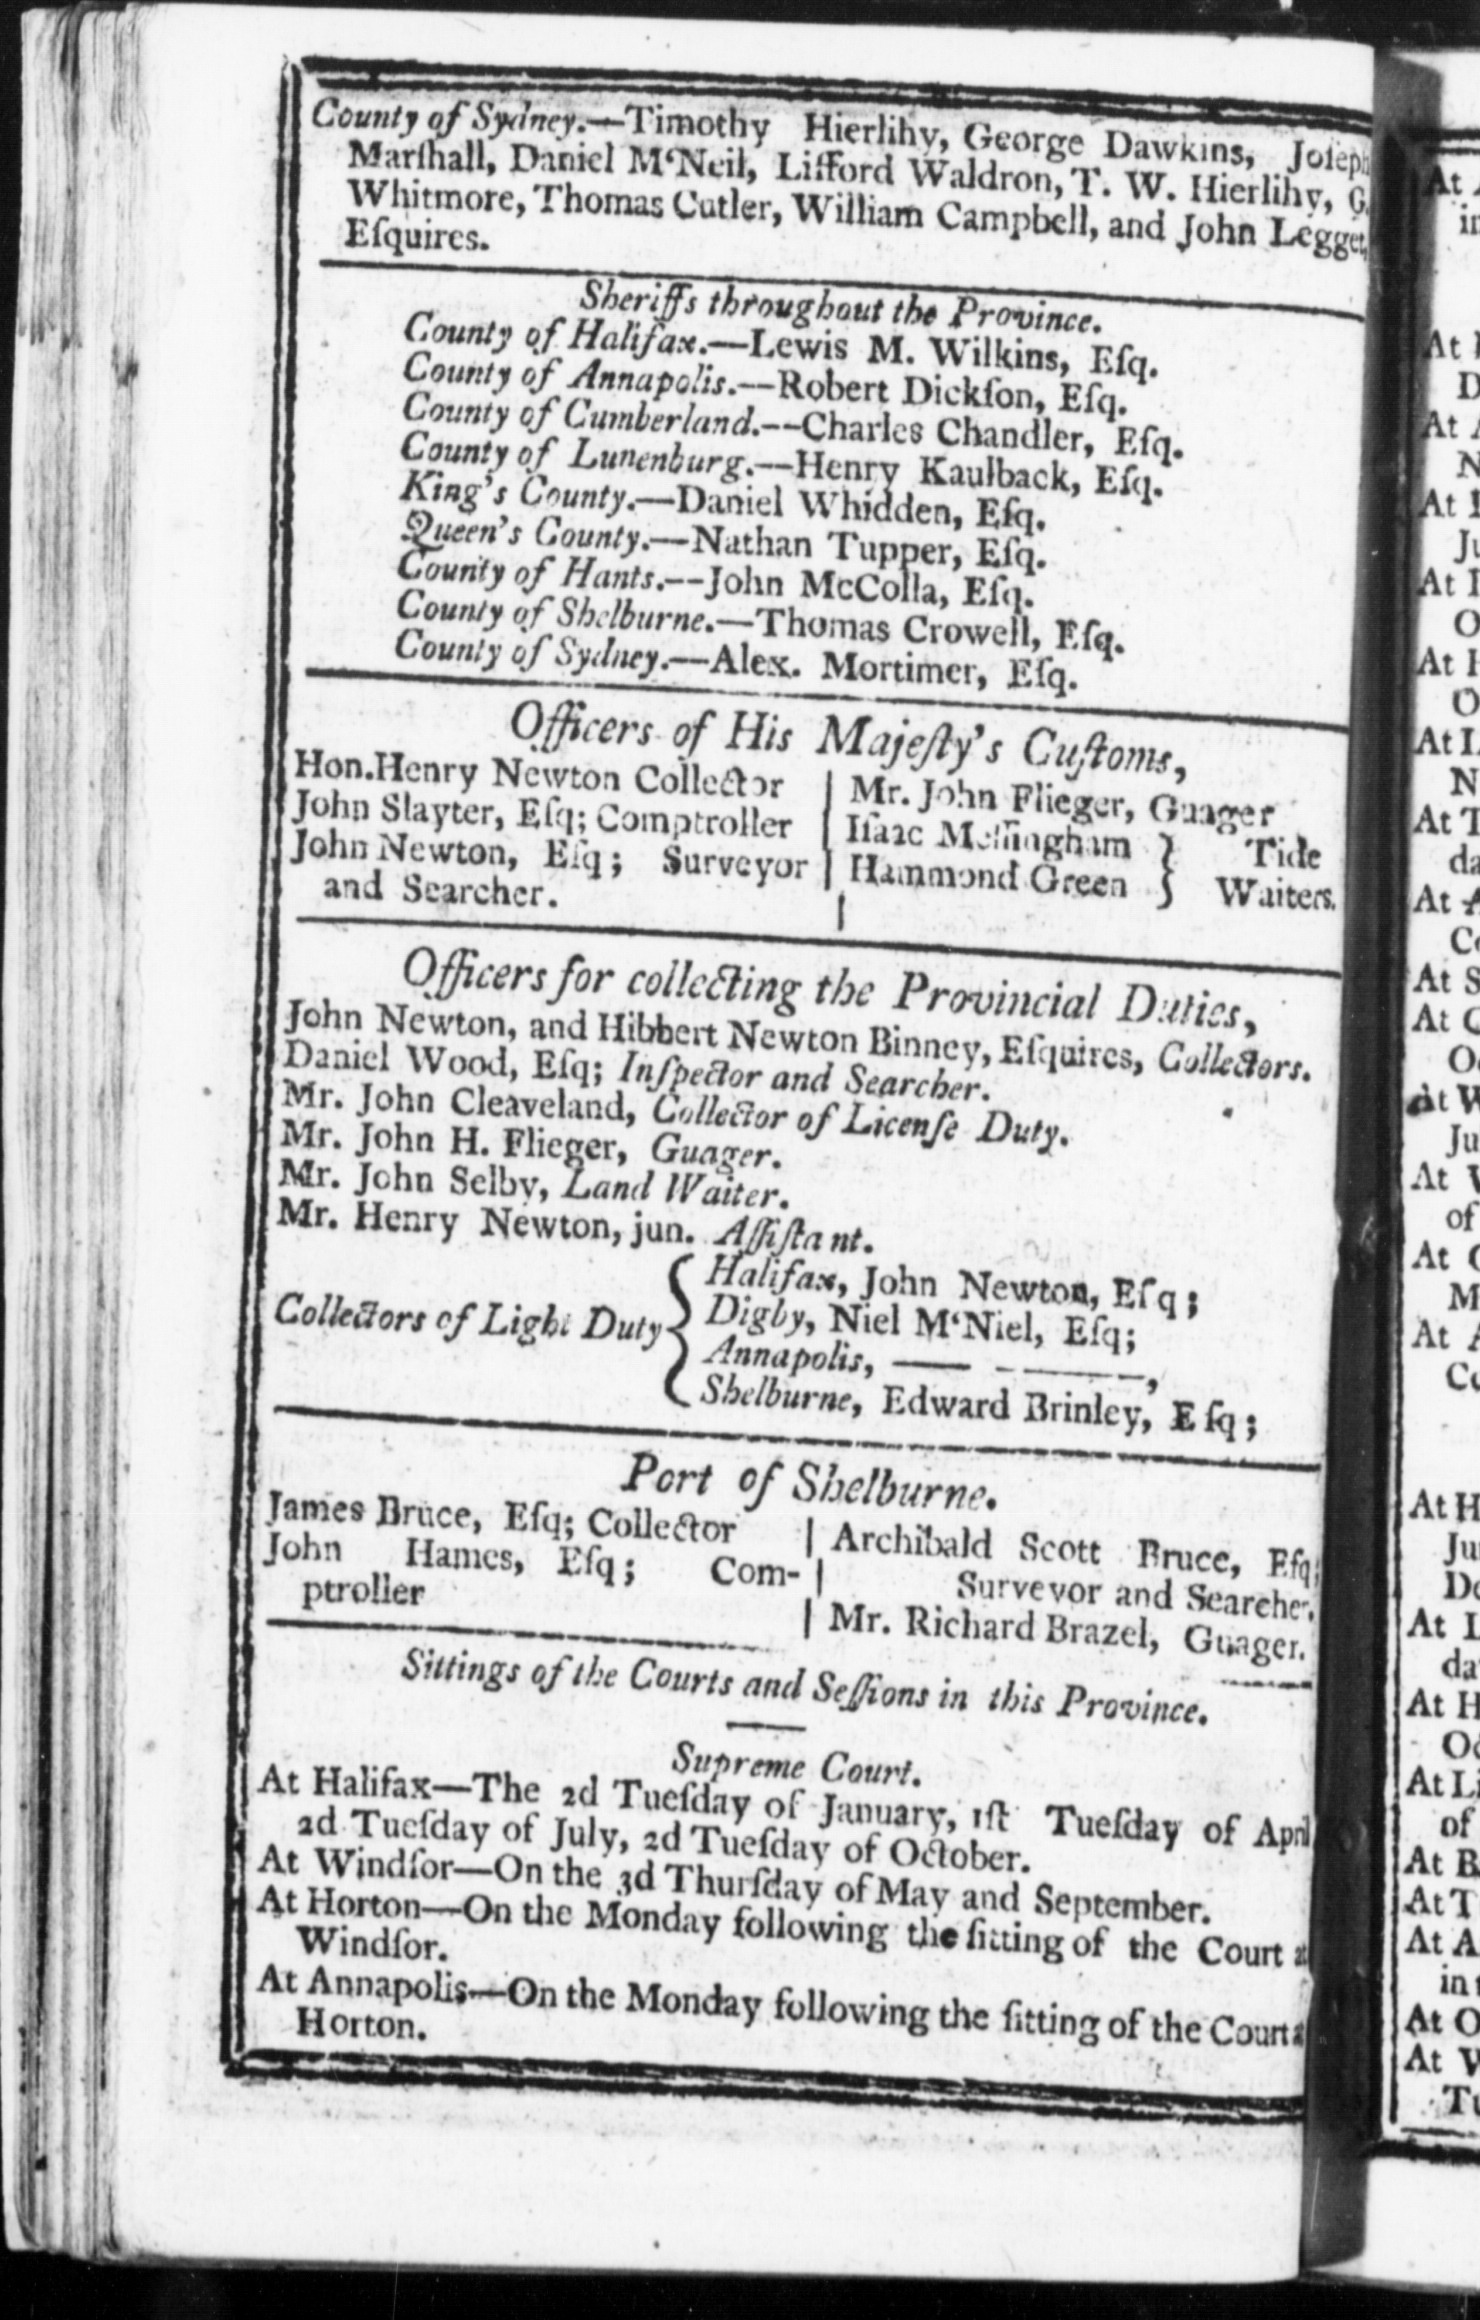 County of Sydney.—Timothy Hierlihy, George Dawkins, Joseph
Marſhall, Daniel M'Neil, Lifford Waldron, T. W. Hierlihy, G.
Whitmore, Thomas Cutler, William Campbell, and John Legget,
Eſquires.
Sheriffs throughout the Province.
County of Halifax.—Lewis M. Wilkins, Eſq.
County of Annapolis.—Robert Dickſon, Eſq.
County of Cumberland.—Charles Chandler, Eſq.
County of Lunenburg.—Henry Kaulback, Eſq.
King's County.—Daniel Whidden, Eſq.
Queen's County.—Nathan Tupper, Eſq.
County of Hants.—John McColla, Eſq.
County of Shelburne.—Thomas Crowell, Eſq.
County of Sydney.—Alex. Mortimer, Eſq.
Officers of His Majeſty's Cuſtoms,
Hon. Henry Newton Collector
John Slayter, Eſq; Comptroller
John Newton, Eſq; Surveyor
and Searcher.
Mr. John Flieger, Guager
Iſaac Meſſingham } Tide
Hammond Green } Waiters.
Officers for collecting the Provincial Duties,
John Newton, and Hibbert Newton Binney, Eſquires, Collectors.
Daniel Wood, Eſq; Inſpector and Searcher.
Mr. John Cleaveland, Collector of Licenſe Duty.
Mr. John H. Flieger, Guager.
Mr. John Selby, Land Waiter.
Mr. Henry Newton, jun. Aſſiſtant.
Collectors of Light Duty
Halifax, John Newton, Eſq;
Digby, Niel M'Niel, Eſq;
Annapolis, —— ————,
Shelburne, Edward Brinley, Eſq;
Port of Shelburne.
James Bruce, Eſq; Collector
John Hames, Eſq; Com-
ptroller
Archibald Scott Bruce, Eſq;
Surveyor and Searcher.
Mr. Richard Brazel, Guager.
Sittings of the Courts and Seſſions in this Province.
Supreme Court.
At Halifax—The 2d Tueſday of January, 1ſt Tueſday of April
2d Tueſday of July, 2d Tueſday of October.
At Windſor—On the 3d Thurſday of May and September.
At Horton—On the Monday following the ſitting of the Court at
Windſor.
At Annapolis—On the Monday following the ſitting of the Court a
Horton.